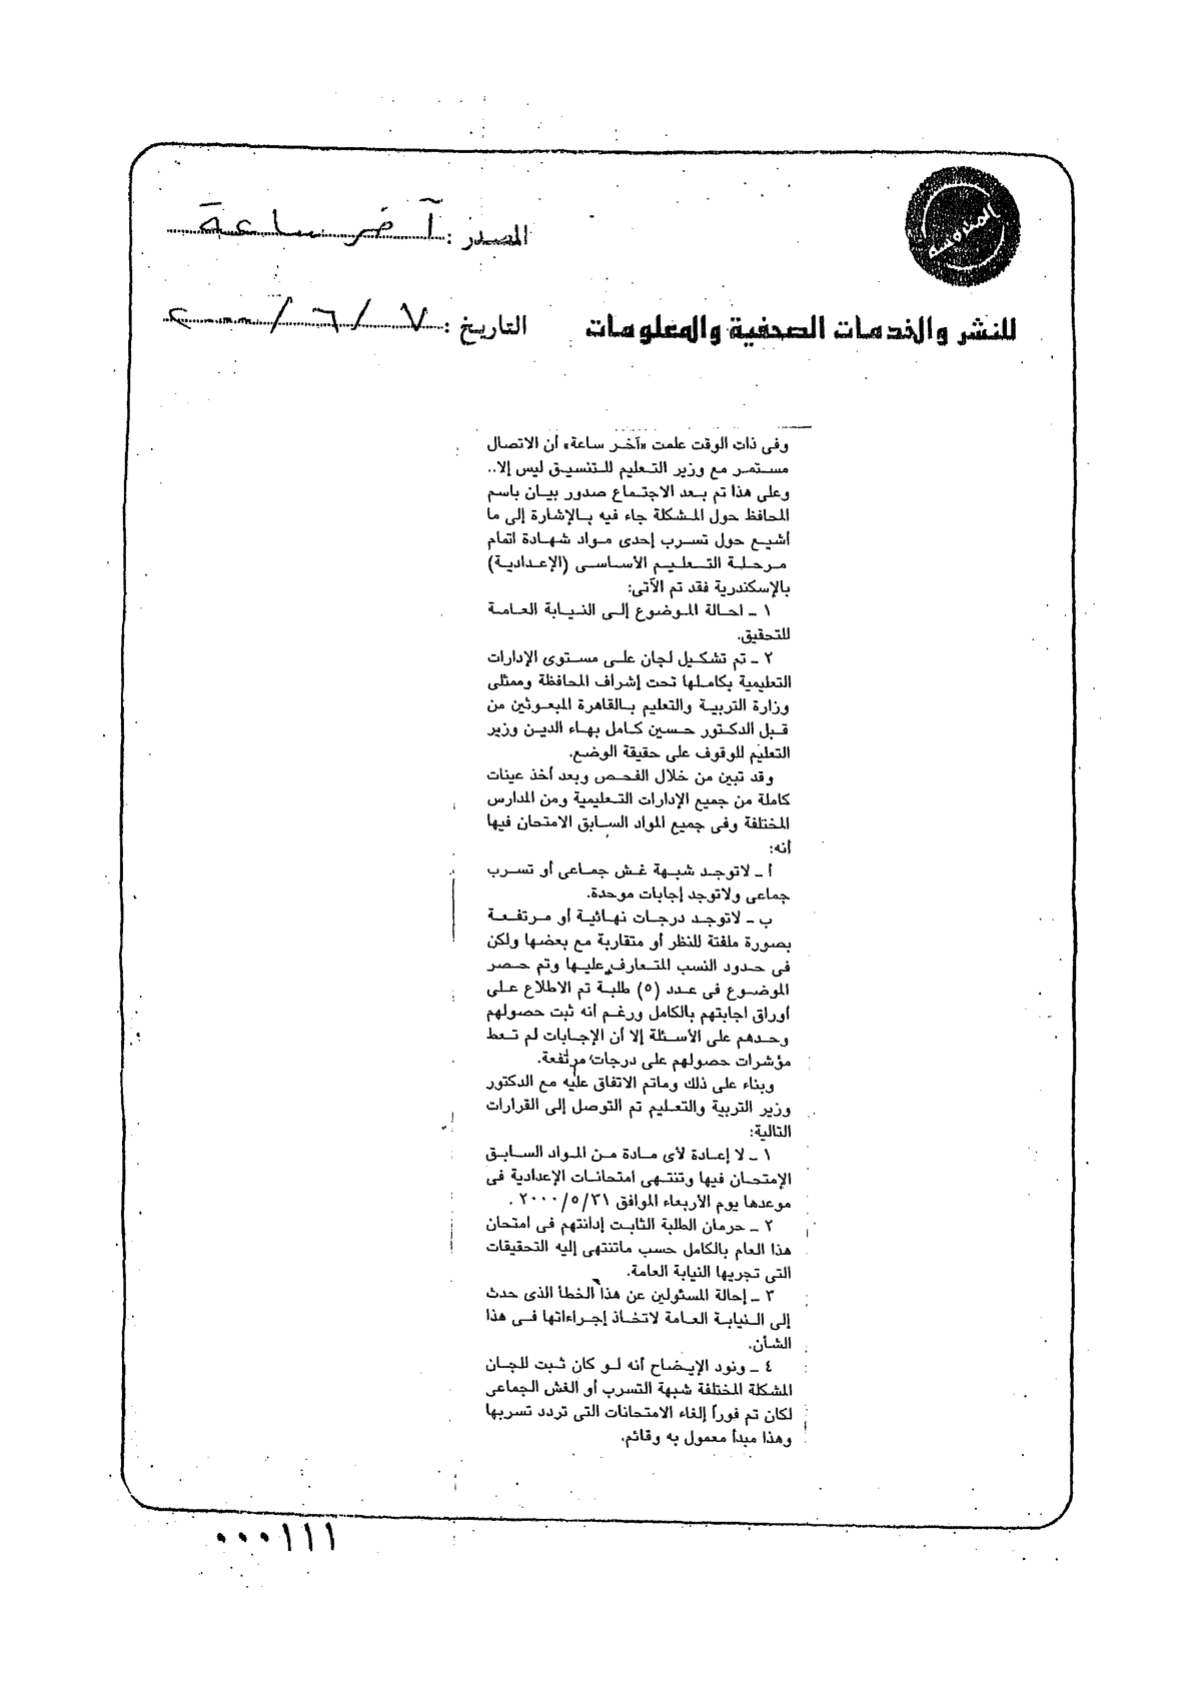 المصدر : آخر ساعة
للنشر والخدمات الصحفية والمعلومات
التاريخ : ٧ / ٦ / ٢٠٠٠
وفى ذات الوقت علمت «آخر ساعة» أن الاتصال
مستمر مع وزير التعليم للتنسيق ليس إلا..
وعلى هذا تم بعد الاجتماع صدور بيان باسم
المحافظ حول المشكلة جاء فيه بالإشارة إلى ما
أشيع حول تسرب إحدى مواد شهادة اتمام
مرحلة التعليم الأساسى (الإعدادية)
بالإسكندرية فقد تم الآتى:
١ - احالة الموضوع إلى النيابة العامة
للتحقيق.
٢ - تم تشكيل لجان على مستوى الإدارات
التعليمية بكاملها تحت إشراف المحافظة وممثلى
وزارة التربية والتعليم بالقاهرة المبعوثين من
قبل الدكتور حسين كامل بهاء الدين وزير
التعليم للوقوف على حقيقة الوضع.
وقد تبين من خلال الفحص وبعد أخذ عينات
كاملة من جميع الإدارات التعليمية ومن المدارس
المختلفة وفى جميع المواد السابق الامتحان فيها
أنه:
أ - لاتوجد شبهة غش جماعى أو تسرب
جماعى ولاتوجد إجابات موحدة.
ب - لاتوجد درجات نهائية أو مرتفعة
بصورة ملفتة للنظر أو متقاربة مع بعضها ولكن
فى حدود النسب المتعارف عليها وتم حصر
الموضوع فى عدد (٥) طلبة تم الاطلاع على
أوراق اجابتهم بالكامل ورغم أنه ثبت حصولهم
وحدهم على الأسئلة إلا أن الإجابات لم تعط
مؤشرات حصولهم على درجات مرتفعة.
وبناء على ذلك وماتم الاتفاق عليه مع الدكتور
وزير التربية والتعليم تم التوصل إلى القرارات
التالية:
١ - لا إعادة لأى مادة من المواد السابق
الإمتحان فيها وتنتهى امتحانات الإعدادية فى
موعدها يوم الأربعاء الموافق ٢٠٠٠/٥/٣١ .
٢ - حرمان الطلبة الثابت إدانتهم فى امتحان
هذا العام بالكامل حسب ماتنتهى إليه التحقيقات
التى تجريها النيابة العامة.
٣ - إحالة المسئولين عن هذا الخطأ الذى حدث
إلى النيابة العامة لاتخاذ إجراءاتها فى هذا
الشأن.
٤ - ونود الإيضاح أنه لو كان ثبت للجان
المشكلة المختلفة شبهة التسرب أو الغش الجماعى
لكان تم فوراً إلغاء الامتحانات التى تردد تسربها
وهذا مبدأ معمول به وقائم.
٠٠٠١١١